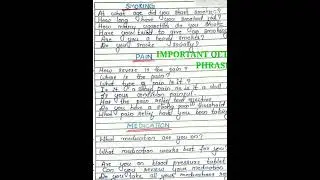 SMOKING
At what age did you start smoking?
How long have you smoked
How many cigarettes do you smoke
Have you tried to give up smoking
Are you a heavy smoker?
Do you smoke socially?
PAIN IMPORTANT OET
PHRAS
How severe is the pain?
Where is the pain?
What type of pain is it?
Is it a sharp pain or is it a dull
Is your condition painful
Has the pain relief been effective
Do you have a strong pain threshold
What pain relief have you been taking
MEDICATION
What medication are you on?
What medication works best for you?
Are you on blood pressure tablet
Can you review your medication
Do you take all your medications